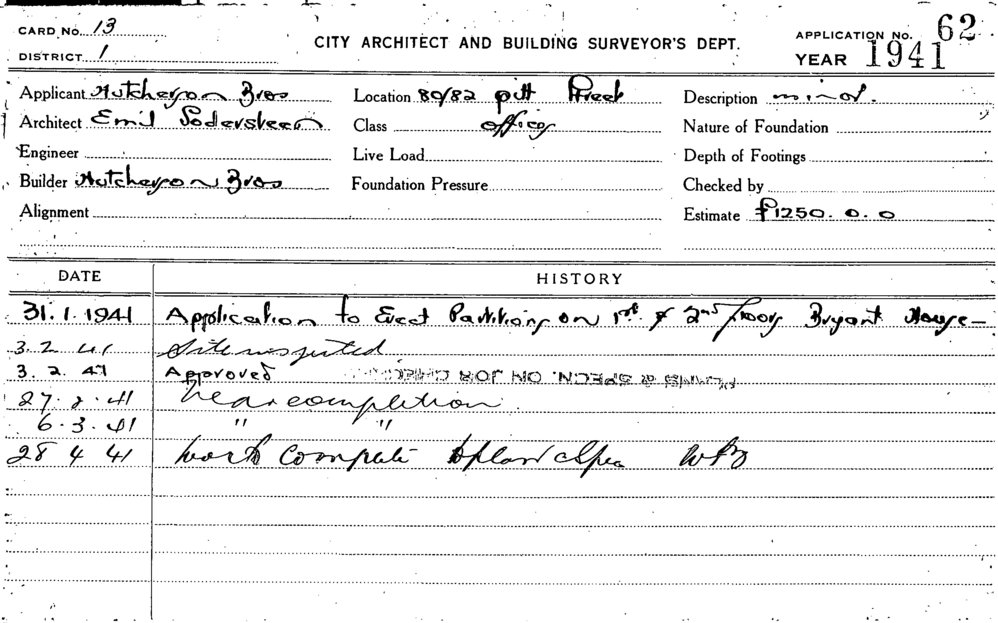 CARD No. 13
DISTRICT 1
CITY ARCHITECT AND BUILDING SURVEYOR'S DEPT.
APPLICATION No. 62
YEAR 1941
Applicant Hutcherson Bros
Architect Emil Sodersteen
Engineer
Builder Hutcherson Bros
Alignment
Location 80/82 pitt Street
Class offices
Live Load
Foundation Pressure
Description minor.
Nature of Foundation
Depth of Footings
Checked by
Estimate £1250.0.0
DATE HISTORY
31.1.1941 Application to Erect Partitions on 1st & 2nd floors Bryant House—
3.2.41 Site inspected.
3.2.41 Approved PLANS & SPECN. ON JOB CHECKED
27.2.41 Near completion.
6.3.41 " "
28 4 41 Work Complete plan & Spec